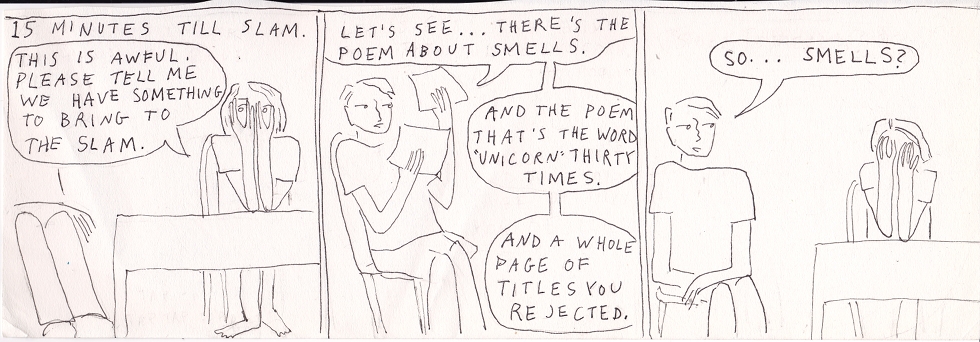 15 MINUTES TILL SLAM.
THIS IS AWFUL.
PLEASE TELL ME
WE HAVE SOMETHING
TO BRING TO
THE SLAM.
LET'S SEE... THERE'S THE
POEM ABOUT SMELLS.
AND THE POEM
THAT'S THE WORD
"UNICORN" THIRTY
TIMES.
AND A WHOLE
PAGE OF
TITLES YOU
REJECTED.
SO... SMELLS?